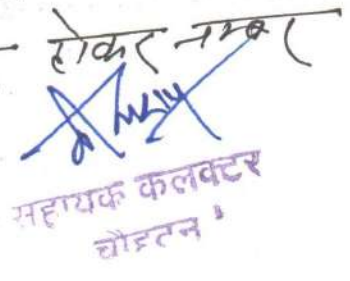 होकर नम्बर
सहायक कलक्टर
चौहटन